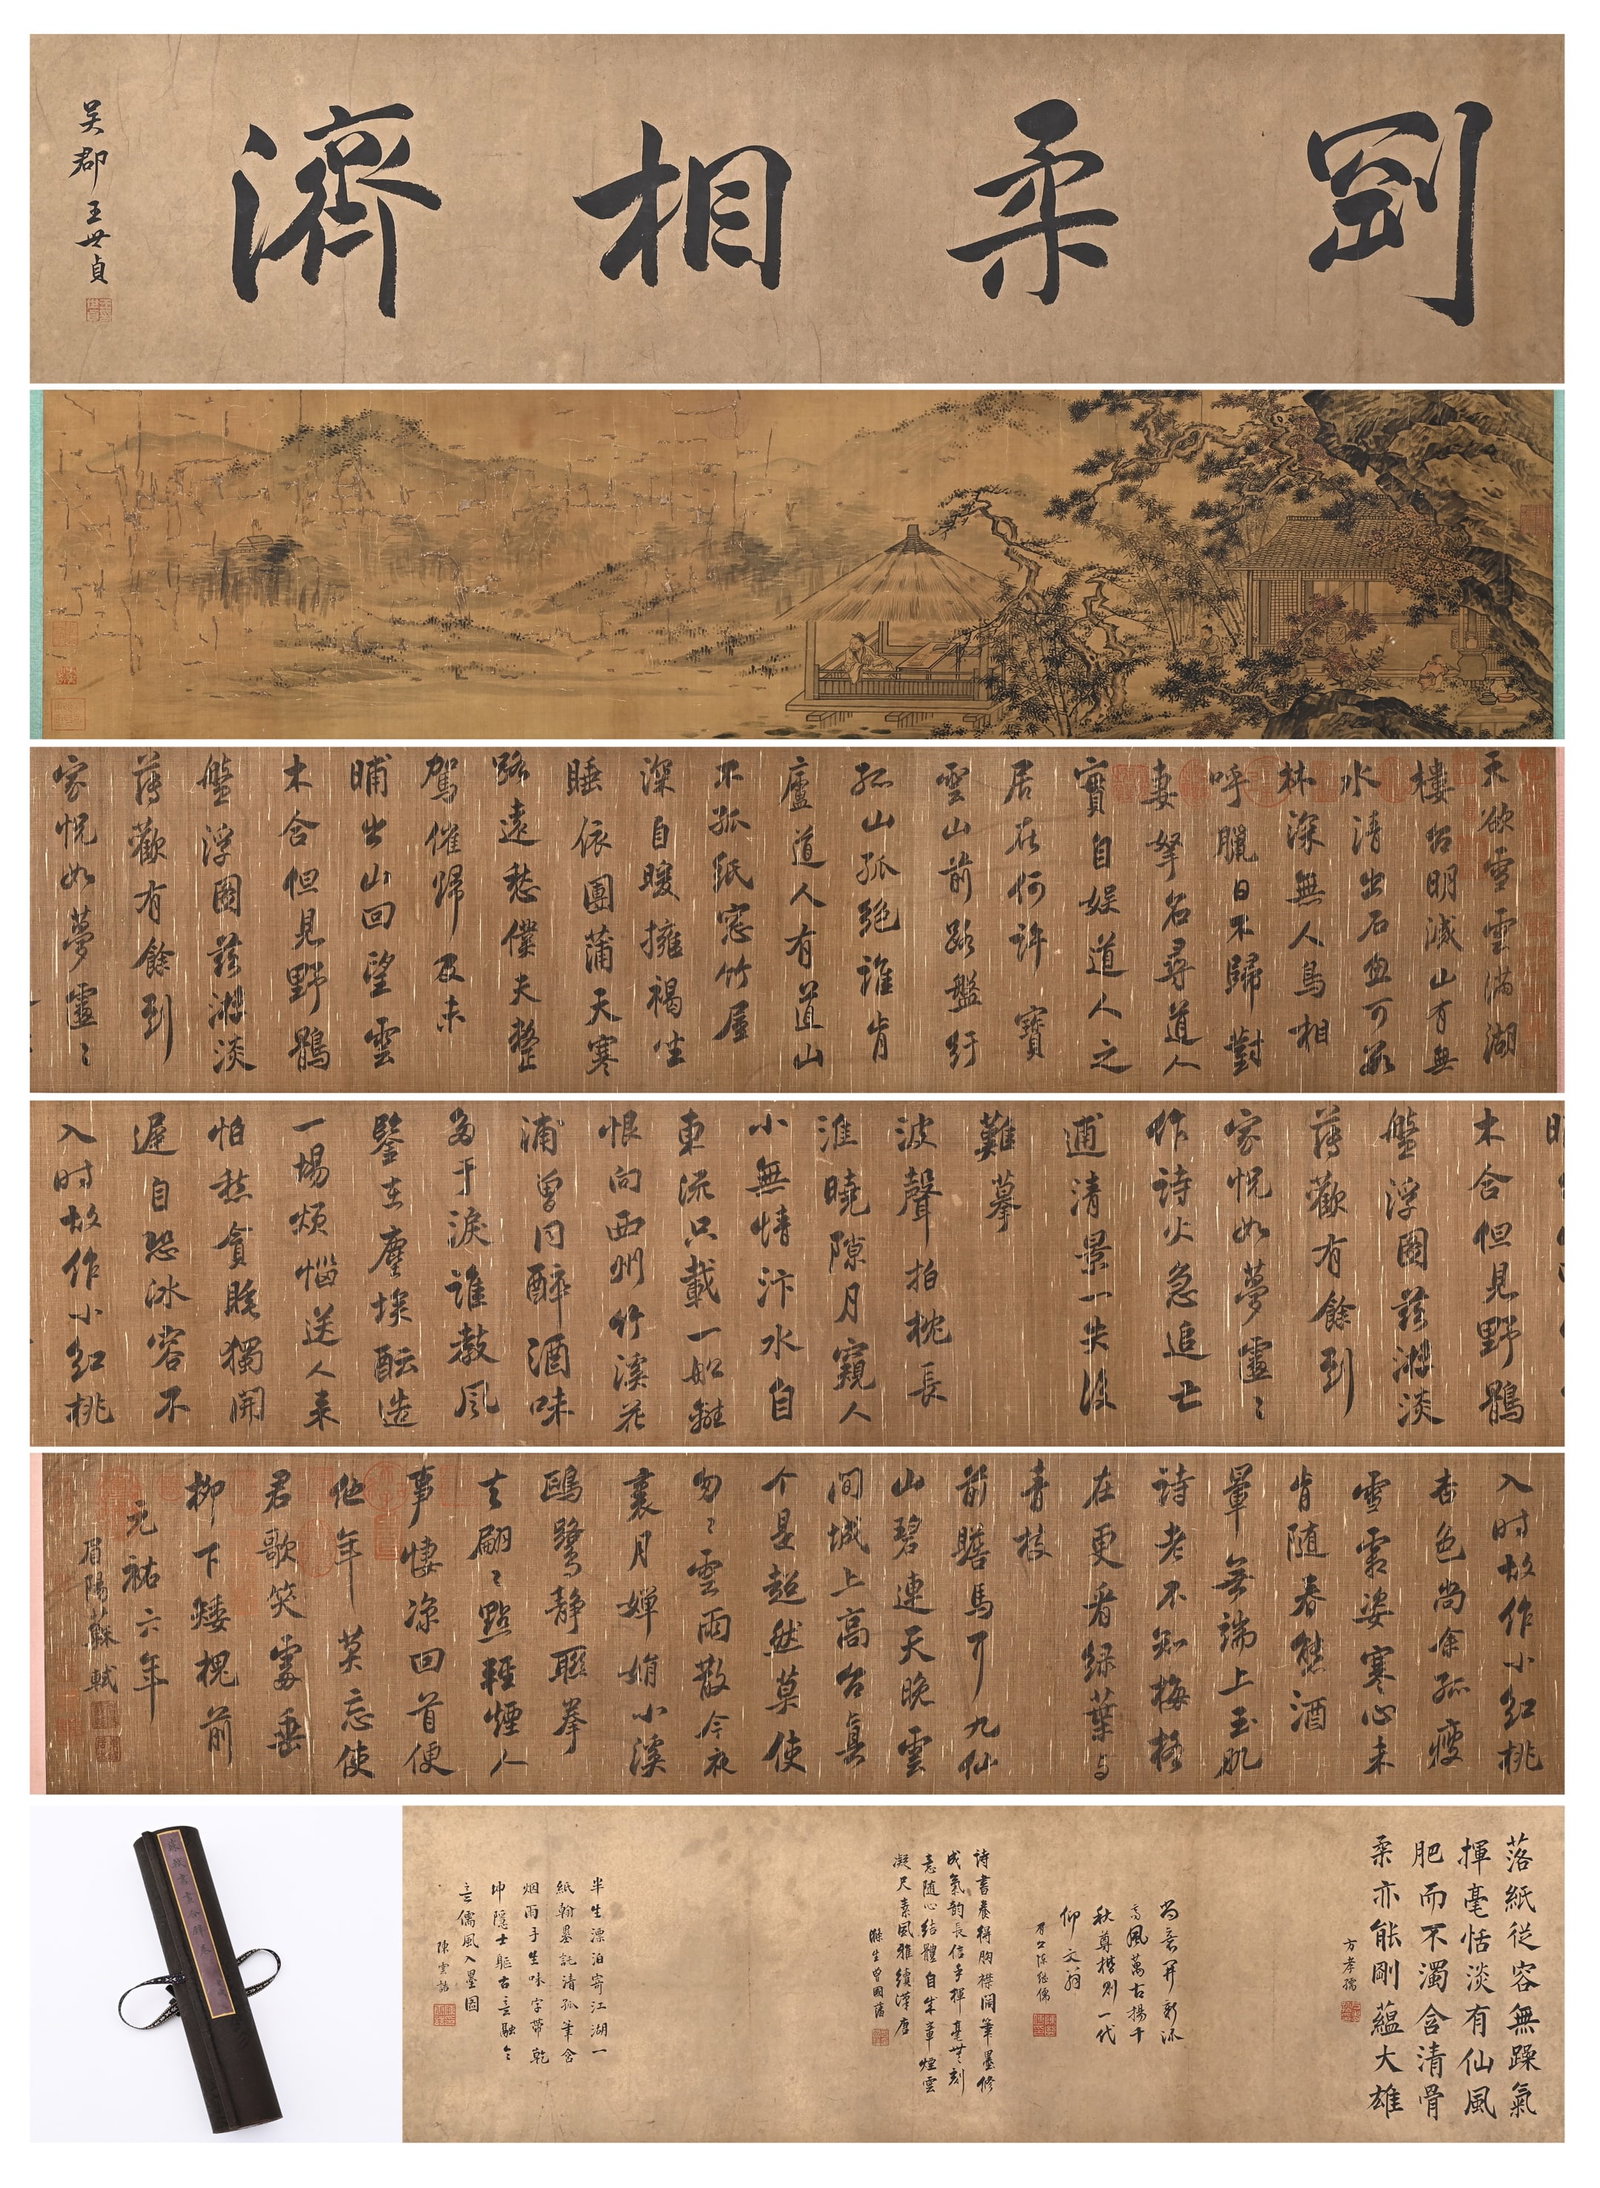 剛柔相濟
吳郡王世貞
天欲雪雲滿湖
樓台明滅山有無
水清出石魚可數
林深無人鳥相
呼臘日不歸對
妻孥名尋道人
實自娛道人之
居在何許 寶
雲山前路盤紆
孤山孤絕誰肯
廬道人有道山
不孤紙窓竹屋
深自暖擁褐坐
睡依團蒲天寒
路遠愁僕夫整
駕催歸及未
晡出山回望雲
木合但見野鶻
盤浮圖茲游淡
薄歡有餘到
家怳如夢蘧〻
木合但見野鶻
盤浮圖茲游淡
薄歡有餘到
家怳如夢蘧〻
作詩火急追亡
逋清景一失後
難摹
波聲拍枕長
淮曉隙月窺人
小無情汴水自
東流只載一船離
恨向西州竹溪花
浦曾同醉酒味
多于淚誰教風
鑒在塵埃醞造
一場煩惱送人來
怕愁貪睡獨開
遲自恐冰容不
入时故作小紅桃
入时故作小紅桃
杏色尚余孤瘦
雪霜姿寒心未
肯隨春態酒
暈無端上玉肌
詩老不知梅格
在更看綠葉与
青枝
前瞻馬耳九仙
山碧連天晚雲
間城上高台真
个是超然莫使
匆〻雲雨散今夜
裏月嬋娟小溪
鷗鷺靜聯拳
去翩〻點輕煙人
事悽涼回首便
他年莫忘使
君歌笑處垂
柳下矮槐前
元祐六年
眉陽蘇軾
落紙従容無躁氣
揮毫恬淡有仙風
肥而不濁含清骨
柔亦能剛蘊大雄
方孝孺
尚意開新派
高風萬古揚千
秋尊楷則一代
仰文翁
眉公陳繼儒
詩書養得胸襟闊筆墨修
成氣韵長信手揮毫無刻
意隨心結體自生華煙雲
凝尺素風雅續漢唐
滌生曾國藩
半生漂泊寄江湖一
紙翰墨託清孤筆含
烟雨手生味字帶乾
坤隱士軀古意融今
意儒風入墨圖
陳雲誥